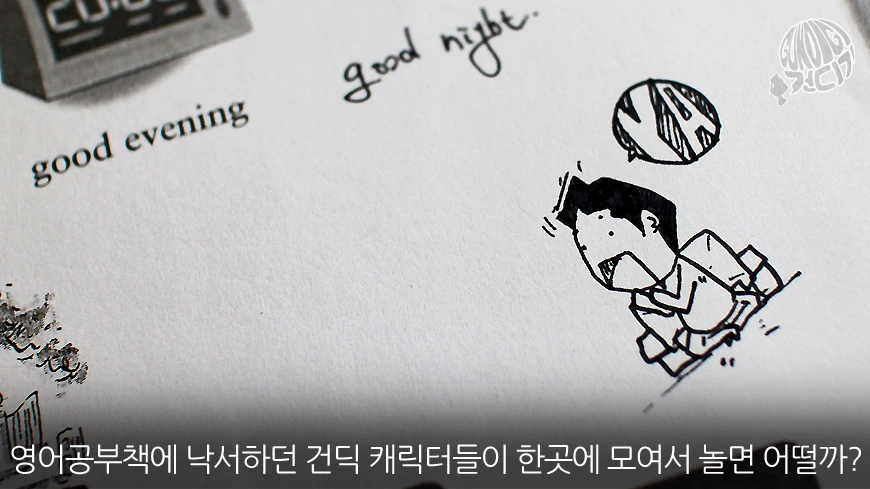 good night.
good evening
YA
영어공부책에 낙서하던 건딕 캐릭터들이 한곳에 모여서 놀면 어떨까?